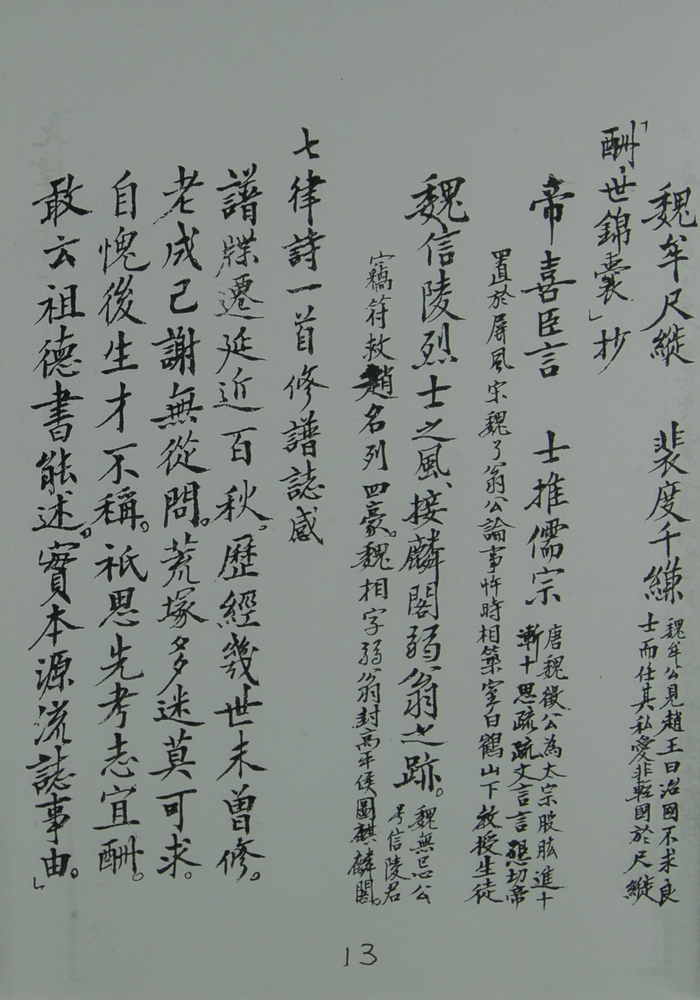 魏牟尺縰　裴度千縑 魏牟公見趙王曰治國不求良
士而任其私愛非輕國於尺縰
「酬世錦囊」抄
帝喜臣言　士推儒宗 唐魏徵公為太宗股肱進十
漸十思疏疏文言言懇切帝
置於屏風宋魏了翁公論事忤時相築室白鶴山下教授生徒
魏信陵烈士之風、接麟閣弱翁之跡。魏無忌公
号信陵君
竊符救趙名列四豪。魏相字弱翁封高平侯圖麒麟閣。
七律詩一首修譜誌感
譜牒遷延近百秋。歷經幾世未曾修。
老成已謝無從問。荒塚多迷莫可求。
自愧後生才不稱。祇思先考志宜酬。
敢云祖德書能述。實本源流誌事由。」
13